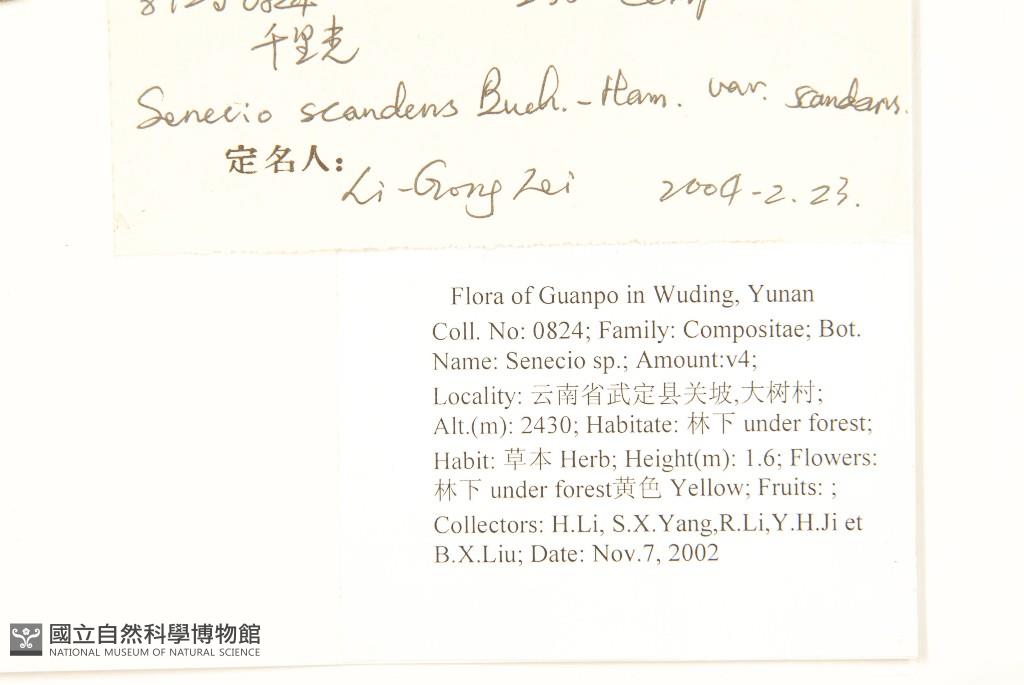 千里光
Senecio scandens Buch.-Ham. var. scandens.
定名人: Li-Gong Lei 2004-2.23.
Flora of Guanpo in Wuding, Yunan
Coll. No: 0824; Family: Compositae; Bot.
Name: Senecio sp.; Amount:v4;
Locality: 云南省武定县关坡,大树村;
Alt.(m): 2430; Habitate: 林下 under forest;
Habit: 草本 Herb; Height(m): 1.6; Flowers:
林下 under forest黄色 Yellow; Fruits: ;
Collectors: H.Li, S.X.Yang,R.Li,Y.H.Ji et
B.X.Liu; Date: Nov.7, 2002
國立自然科學博物館
NATIONAL MUSEUM OF NATURAL SCIENCE